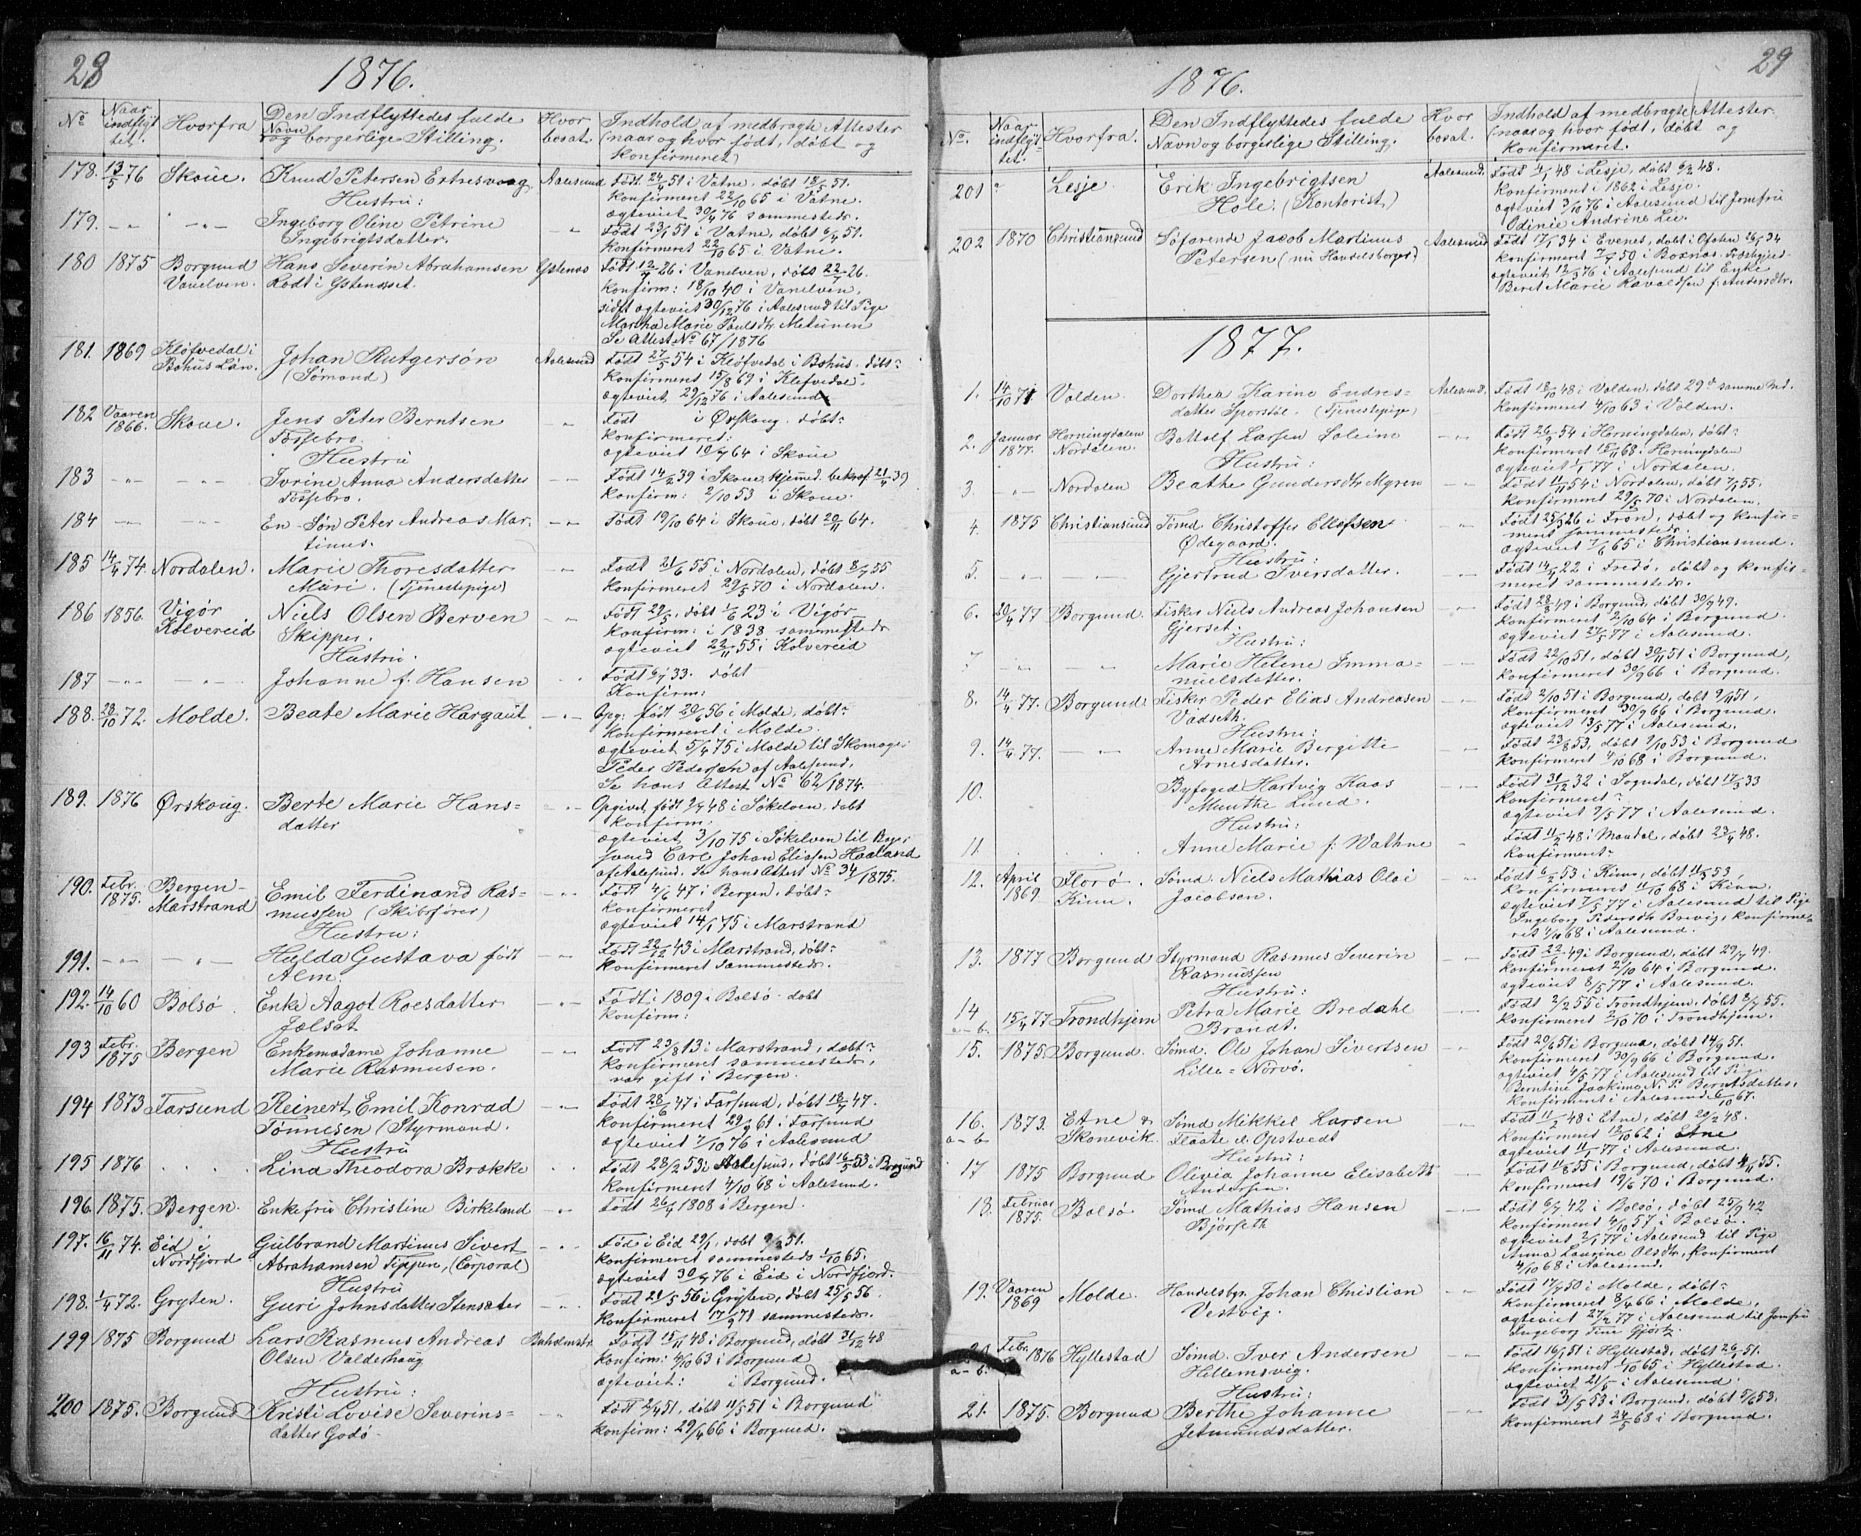 28
1876.
No Naar indflyttet. Hvorfra Den Indflyttedes fulde Navn og borgerlige Stilling. Hvor bosat. Indhold af medbragte Attester (naar og hvor født, døbt og konfirmeret)
178. 13/5 76 Skoue. Knud Petersen Aalesund Født 24/4 51 i Vatne, døbt 18/5 51.
Hustru: Konfirmeret 22/10 65 i Vatne.
ægteviet 30/4 76 sammesteds.
179. -"- -"- Ingeborg Oline Petrine -"- Født 23/1 51 i Vatne, døbt 6/4 51.
Ingebrigtsdatter. Konfirmeret 22/10 65 i Vatne.
180 1875 Borgund Hans Severin Abrahamsen Ystenæs Født 12/7 26 i Vanelven, døbt 22/7 26.
Vanelven. Rødt i Ystenæset. Konfirm: 18/10 40 i Vanelven,
sidst ægteviet 30/12 76 i Aalesund til Pige
Martha Marie Poulsdtr
Se Attest No 67/1876
181. 1869 Kløfvedal i Johan Rutgersøn Aalesund Født 27/5 54 i Kløfvedal i Bohus. døbt-
Bohus Län. (Sømand) Konfirmeret 15/8 69 i Klefvedal.
ægteviet 29/12 76 i Aalesund
182 Vaaren Skoue. Jens Peter Berntsen -"- Født i Ørskoug. døbt-
1866. Fossebro. Konfirmeret:
Hustru ægteviet 10/7 64 i Skoue
183 -"- -"- Ivrine Anna Andersdatter -"- Født 14/2 39 i Skoue, hjemmed. bekræf. 21/4 39
Fossebro. Konfirm: 2/10 53 i Skoue.
184 -"- -"- En Søn Peter Andreas Mar- -"- Født 19/10 64 i Skoue, døbt 20/11 64.
tinus.
185 14/4 74 Nordalen. Marie Thoresdatter -"- Født 21/6 55 i Nordalen, døbt 8/7 55
Muri. (Tjenestepige) Konfirmeret 29/5 70 i Nordalen.
186 1856. Vigør Niels Olsen Berven -"- Født 29/5, døbt 1/6 23 i Vigør
Kolvereid Skipper. Konfirm: i 1838 sammesteds
Hustru. ægteviet 22/11 55 i Kolvereid
187 -"- -"- Johanne f. Hansen -"- Født 6/7 33. døbt
Konfirm:
188. 28/10 72. Molde. Beate Marie Hargaut -"- Opg: født 20/6 56 i Molde, døbt-
Konfirmeret i Molde
ægteviet 5/4 75 i Molde til Skomager
Peder Pedersen af Aalesund,
Se hans Attest No 62/1874.
189. 1876 Ørskoug. Berte Marie Hans- -"- Opgivet, født 2/7 48 i Søkelven døbt
datter Konfirm:
ægteviet 3/10 75 i Søkelven til Bager
svend Carl Johan Eliasen Haaland
af Aalesund. Se hans Attest No 34/1875.
190. Febr. Bergen- Emil Ferdinand Ras- Født 4/6 47 i Bergen, døbt-
1875. Marstrand mussen (Skibsfører) Konfirmeret
Hustru: ægteviet 14/1 75 i Marstrand
191. -"- -"- Hulda Gustava født Født 22/12 43 i Marstrand, døbt-
Alm. Konfirmeret sammesteds.
192. 14/10 60 Bolsø Enke Aagot Roesdatter -"- Født i 1809 i Bolsø. døbt
Jølset Konfirm:
193 Febr. Bergen Enkemadame Johanne Født 23/8 13 i Marstrand, døbt-
1875 Marie Rasmusen. Konfirmeret sammesteds,
var gift i Bergen.
194 1873 Farsund Reinert Emil Konrad Født 28/6 47 i Farsund, døbt 18/7 47.
Tønnesen (Styrmand. Konfirmeret 29/9 61 i Farsund
Hustru ægteviet 1/10 76 i Aalesund
195 1876 Lina Theodora Brække Født 28/2 53 i Aalesund, døbt 16/5 53 i Borgund
Konfirmeret 4/10 68 i Aalesund.
196. 1875. Bergen. Enkefru Christine Birkeland -"- Født 26/4 1808 i Bergen.
197. 16/11 74. Eid i Gulbrand Martinus Sivert -"- Født i Eid 29/1, døbt 9/2 51.
Nordfjord Abrahamsen Tippen, (Corporal) Konfirmeret sammesteds 1/10 65.
Hustru ægteviet 30/4 76 i Eid i Nordfjord.
198. 1/4 72. Gryten. Guri Johnsdatter Stensæter -"- Født 21/5 56 i Gryten, døbt 25/5 56
Konfirmeret 17/9 71 sammesteds.
199 1875 Borgund Lars Rasmus Andreas Født 15/11 48 i Borgund, døbt 31/12 48
Olsen Valderhaug Konfirm: 4/10 63 i Borgund
Hustru: ægteviet: i Borgund.
200 1875. Borgund Kristi Lovise Severins- -"- Født 2/4 51, døbt 11/5 51 i Borgund
datter Godø. Konfirm: 29/4 66 i Borgund.
29
1876.
No. Naar indflyttet. Hvorfra. Den Indflyttedes fulde Navn og borgerlige Stilling. Hvor bosat. Indhold af medbragte Attester (naar og hvor født, døbt og konfirmeret.
201 " Lesje Erik Ingebrigtsen Aalesund. Født 1/1 48 i Lesje, døbt 6/2 48.
Hole. (Kontorist) Konfirmeret i 1862 i Lesje.
ægteviet 3/10 76 i Aalesund til Jomfru
Odinie Andrine Lie.
202 1870 Christiansund Søfarende Jacob Martinus Aalesund Født 17/1 34 i Evenes, døbt i Ofoten 26/5 34
Petersen (nu Handelsborger) Konfirmeret 7/7 50 i
ægteviet 12/5 76 i Aalesund til Enke
Beret Marie Ravaldsen f. Andersdtr.
1877.
1. 14/10 71 Volden. Dorthea Karine Endres- Aalesund. Født 18/10 48 i Volden, døbt 29de samme Md.
datter Sporstøl. (Tjenestepige) Konfirmeret 4/10 63 i Volden.
2. Januar Horningdalen Bottolf Larsen -"- Født 26/9 54 i Horningdalen, døbt-
1877. Nordalen. Hustru: Konfirmeret 15/11 68 i Horningdalen
ægteviet 1/1 77 i Nordalen.
3. -"- Nordalen Beathe Gundersdtr Myren -"- Født 11/11 54 i Nordalen, døbt 7/1 55.
Konfirmeret 29/5 70 i Nordalen.
4. 1875 Christiansund Tømd Christoffer Ellefsen -"- Født 25/3 26 i Frøn, døbt og konfir-
Ødegaard. meret sammesteds
Hustru: ægteviet 7/6 65 i Christiansund.
5. -"- -"- Gjertrud Iversdatter. -"- Født 14/5 22 i Fredø, døbt og konfir-
meret sammesteds.
6. 20/4 77 Borgund. Fisker Niels Andreas Johansen -"- Født 28/8 49 i Borgund, døbt 30/9 49.
Gjerset. Konfirmeret 2/10 64 i Borgund.
Hustru: ægteviet 27/5 77 i Aalesund.
7 -"- -"- Marie Helene Imma- -"- Født 22/10 51, døbt 30/11 51 i Borgund,
nielsdatter Konfirmeret 30/9 66 i Borgund.
8. 14/4 77. Borgund Fisker Peder Elias Andreasen -"- Født 2/10 51 i Borgund, døbt 9/11 51,
Vadseth. Konfirmeret 30/9 66 i Borgund.
Hustru: ægteviet 13/5 77 i Aalesund.
9. 14/4 77. -"- Anne Marie Bergitte -"- Født 23/8 53, døbt 9/10 53 i Borgund
Arnesdatter. Konfirmeret 4/10 68 i Borgund.
10. Byfoged Hartvig Kaas Født 31/12 32 i Sogndal, døbt 17/3 33
Munthe Lund. Konfirmeret-
Hustru: ægteviet 9/5 77 i Aalesund.
11. Anne Marie f. Wathne Født 11/2 48 i Mandal, døbt 23/4 48.
Konfirmeret-
12. April Florø. Sømd. Niels Mathias Olai -"- Født 6/2 53 i Kinn, døbt 11/3 53,
1869. Kinn. Jacobsen. Konfirmeret 11/10 68 i Kinn
ægteviet 7/5 77 i Aalesund til Pige
Ingeborg Pedersdtr konfirme-
ret 4/10 68 i Aalesund.
13. 1877 Borgund Styrmand Rasmus Severin -"- Født 22/6 49 i Borgund, døbt 29/7 49.
Rasmussen Konfirmeret 2/10 64 i Borgund.
Hustru: ægteviet 8/5 77 i Aalesund.
14 a-b. 15/4 77 Trondhjem Petra Marie Bredahl -"- Født 2/2 55 i Trondhjem, døbt 8/7 55.
Brandt. Konfirmeret 2/10 70 i Trondhjem.
15. 1875. Borgund. Sømd. Ole Johan Sivertsen -"- Født 20/6 51 i Borgund, døbt 14/9 51.
Lille-Nørvø. Konfirmeret 30/9 66 i Borgund.
ægteviet 4/5 77 i Aalesund til Pige
Berntine Joakime N. P. Berntsdatter,
Konfirmeret i Aalesund 6/10 67.
16. a-b 1873. Etne & Sømd Mikkel Larsen -"- Født 11/2 48 i Etne, døbt 20/2 48.
Skonevik. Flaate el Opstvedt Konfirmeret 12/10 62 i Etne
Hustru: ægteviet 11/5 77 i Aalesund
17 1875 Borgund Olivia Johanne Elisabeth -"- Født 11/8 55 i Borgund, døbt 4/11 55.
Andersen. Konfirmeret 19/6 70 i Borgund.
18. Februar Bolsø. Sømd Mathias Hansen -"- Født 6/7 42 i Bolsø, døbt 25/9 42
1875. Bjørseth Konfirmeret 4/10 57 i Bolsø.
ægteviet 2/1 77 i Aalesund til Pige
Anna Laurine Olsdtr, Konfirmeret
4/10 68 i Aalesund.
19. Vaaren Molde. Handelsbgr. Johan Christian -"- Født 17/4 50 i Molde, døbt-
1869 Vestvig. Konfirmeret 8/4 66 i Molde,
ægteviet 27/4 77 i Aalesund til Jomfru
Ingeborg Tine Gjørtz.
20. a-b. Febr. 1876 Hyllestad Sømd. Iver Andersen Født 16/5 51 i Hyllestad, døbt 26/5 51.
Hillemsvig. Konfirmeret 1/10 65 i Hyllestad.
Hustru: ægteviet 21/5 i Aalesund.
21. 1875. Borgund Berthe Johanne -"- Født 3/5 53 i Borgund, døbt 5/6 53.
Jetmundsdatter. Konfirmeret 24/5 68 i Borgund.